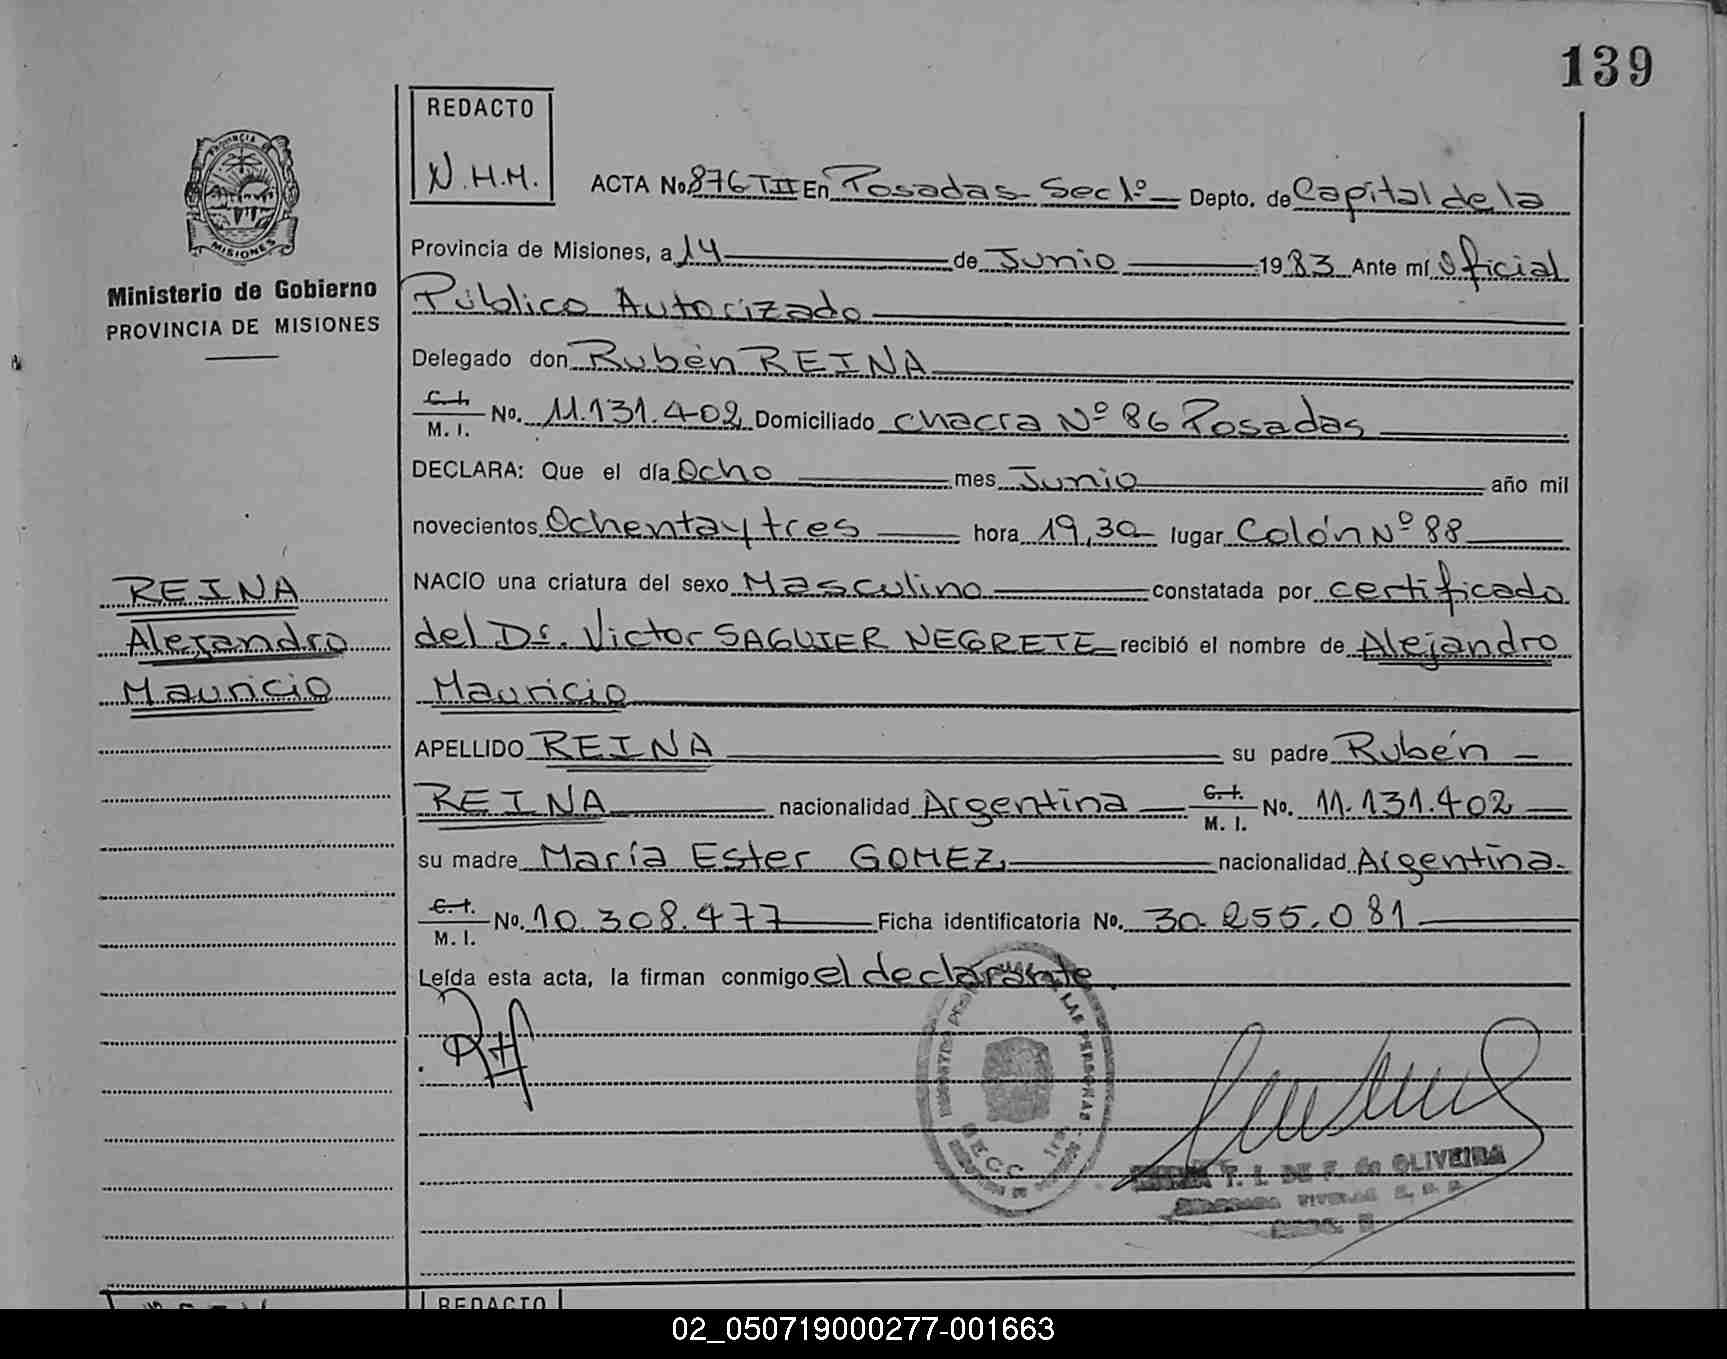 139
REDACTO
N.H.M.
ACTA No 876 T II En Posadas Sec 1º Depto. de Capital de la
Provincia de Misiones, a 14 de Junio 1983 Ante mí Oficial
Público Autorizado
Delegado don Rubén REINA
C. I. M. I. No. 11.131.402 Domiciliado Chacra Nº 86 Posadas
DECLARA: Que el día Ocho mes Junio año mil
novecientos Ochenta y tres hora 19,30 lugar Colón Nº 88
NACIO una criatura del sexo Masculino constatada por certificado
del Dr. Victor SAGUIER NEGRETE recibió el nombre de Alejandro
Mauricio
APELLIDO REINA su padre Rubén
REINA nacionalidad Argentina C. I. M. I. No. 11.131.402
su madre María Ester GOMEZ nacionalidad Argentina.
C. I. M. I. No. 10.308.477 Ficha identificatoria No. 30.255.081
Leída esta acta, la firman conmigo el declarante.
PROVINCIA DE
MISIONES
Ministerio de Gobierno
PROVINCIA DE MISIONES
REINA
Alejandro
Mauricio
LAS PERSONAS
SECC. 1ra.
T. I. DE F. de OLIVEIRA
REDACTO
02_050719000277-001663